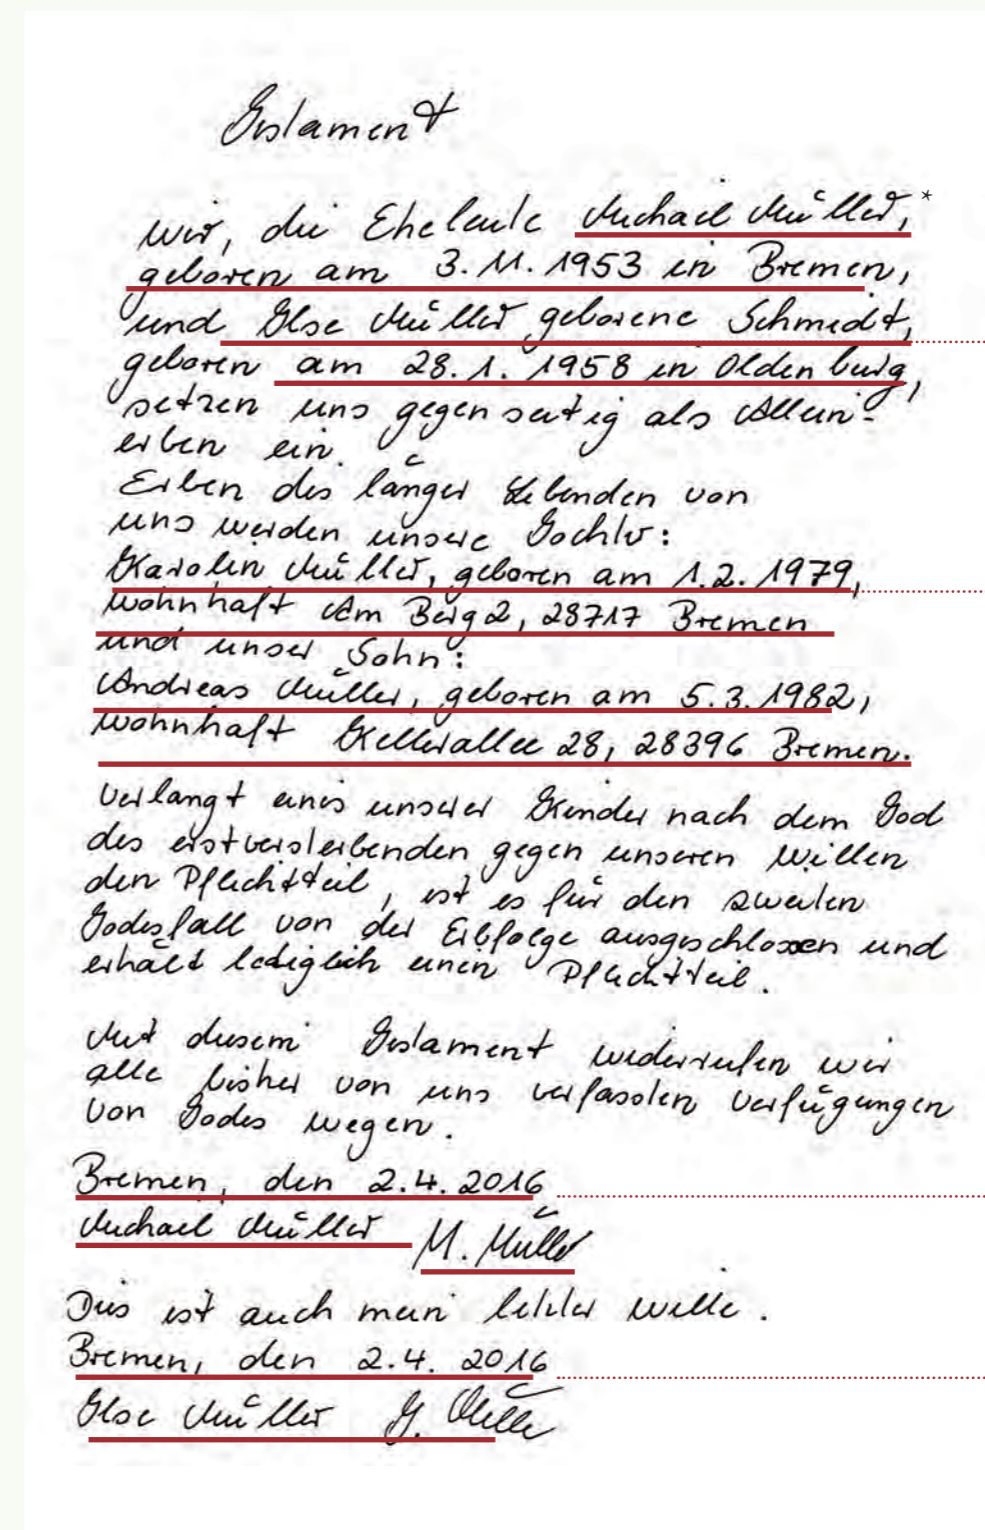 Testament
wir, die Eheleute Michael Müller, *
geboren am 3.11.1953 in Bremen,
und Ilse Müller geborene Schmidt,
geboren am 28.1.1958 in Oldenburg,
setzen uns gegenseitig als Allein-
erben ein.
Erben des länger Lebenden von
uns werden unsere Tochter:
Karolin Müller, geboren am 1.2.1979,
wohnhaft Am Berg 2, 28717 Bremen
und unser Sohn:
Andreas Müller, geboren am 5.3.1982,
wohnhaft Kellerallee 28, 28396 Bremen.
Verlangt eines unserer Kinder nach dem Tod
des erstversterbenden gegen unseren Willen
den Pflichtteil, ist es für den zweiten
Todesfall von der Erbfolge ausgeschlossen und
erhält lediglich einen Pflichtteil.
Mit diesem Testament widerrufen wir
alle bisher von uns verfassten Verfügungen
von Todes wegen.
Bremen, den 2.4.2016
Michael Müller M. Müller
Dies ist auch mein letzter Wille.
Bremen, den 2.4.2016
Ilse Müller I. Müller